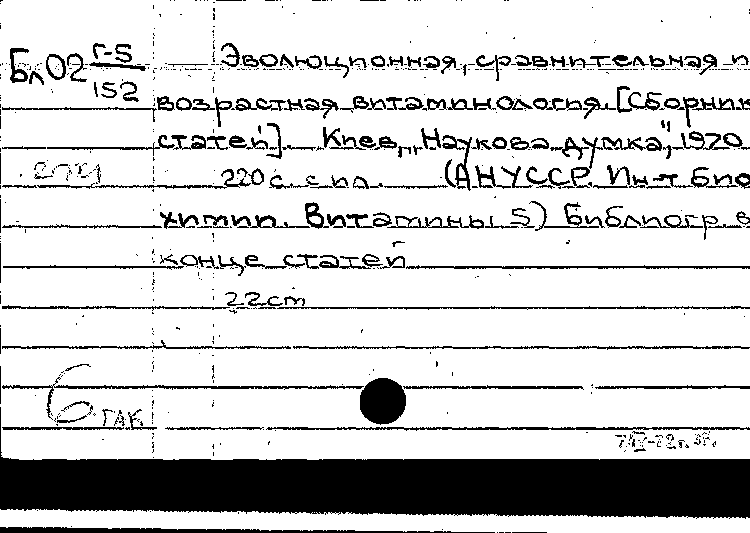 Бл02 Г-5/152
Эволюционная, сравнительная и
возрастная витаминология. [Сборник
статей]. Киев, „Наукова думка", 1970
220 с. с ил. (АН УССР. Ин-т био
химии. Витамины 5) Библиогр. в
конце статей
22 cm
6 ГАК